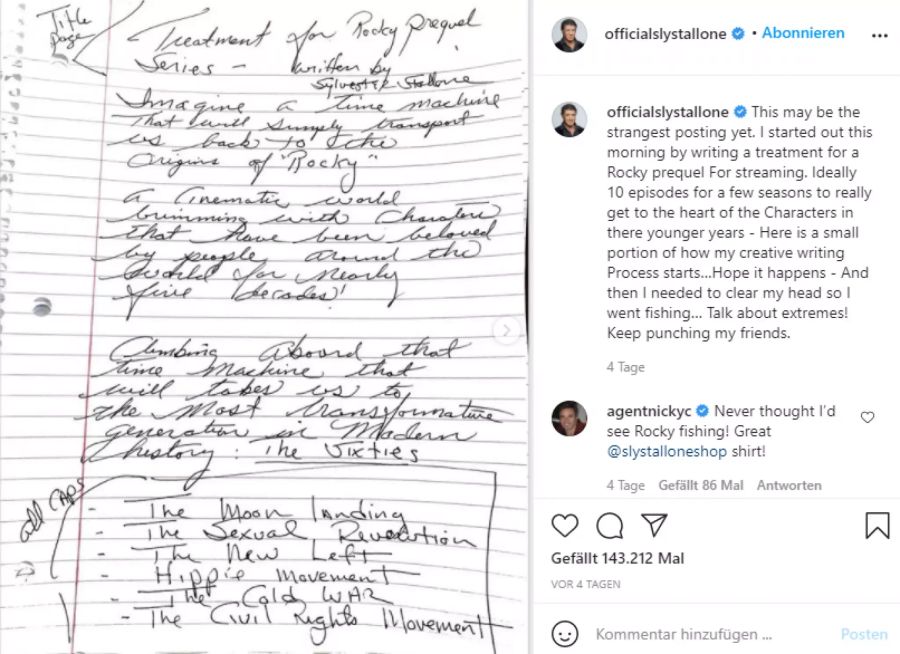 Title
Page
Treatment for Rocky prequel
Series - written by
Sylvester Stallone
Imagine a time machine
That will simply transport
us back to the
Origins of "Rocky"
A Cinematic world
brimming with Characters
that have been beloved
by people around the
World for nearly
five decades!
Climbing Aboard that
time Machine that
will takes us to
the Most transformative
generation in Modern
history: The Sixties
add CAPS
- The Moon landing
- The Sexual Revolution
- The New Left
- Hippie Movement
- The Cold WAR
- The Civil Rights Movement
officialslystallone • Abonnieren
officialslystallone This may be the
strangest posting yet. I started out this
morning by writing a treatment for a
Rocky prequel For streaming. Ideally
10 episodes for a few seasons to really
get to the heart of the Characters in
there younger years - Here is a small
portion of how my creative writing
Process starts...Hope it happens - And
then I needed to clear my head so I
went fishing... Talk about extremes!
Keep punching my friends.
4 Tage
agentnickyc Never thought I'd
see Rocky fishing! Great
@slystalloneshop shirt!
4 Tage Gefällt 86 Mal Antworten
Gefällt 143.212 Mal
VOR 4 TAGEN
Kommentar hinzufügen ... Posten